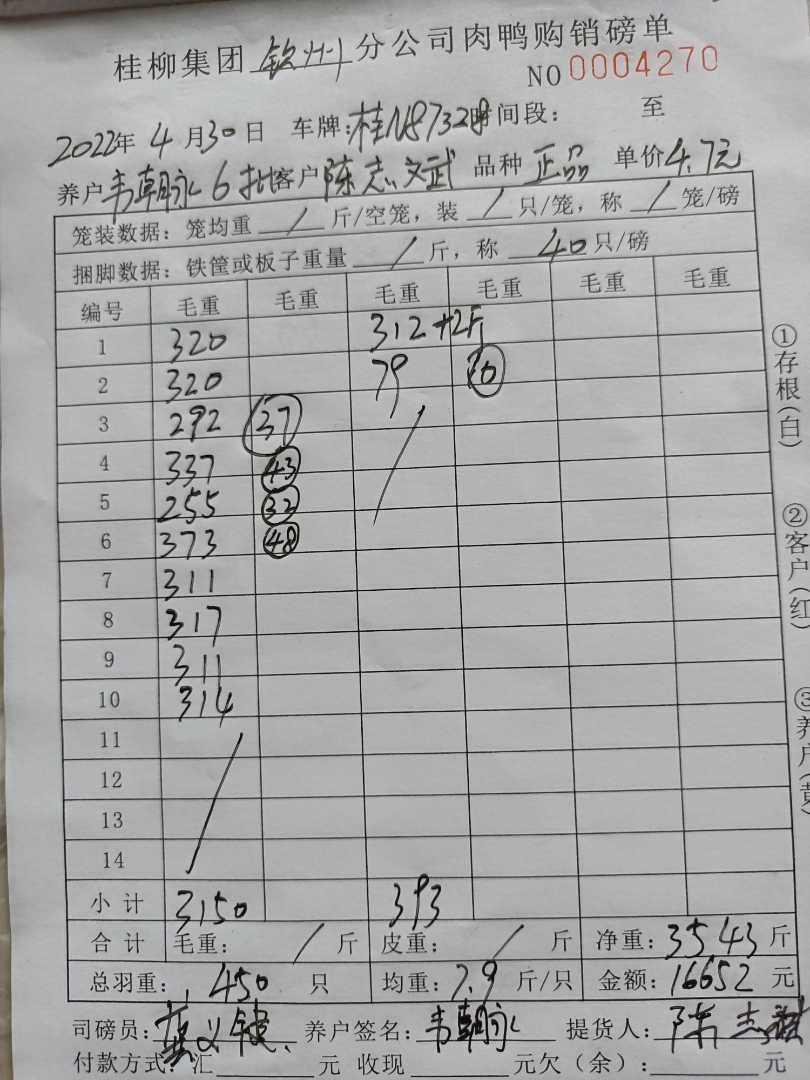 桂柳集团 钦州 分公司肉鸭购销磅单
NO 0004270
2022年 4月30日 车牌:桂N87328 时间段: 至
养户韦朝永 6批 客户 陈志文武 品种 正品 单价4.7元
笼装数据: 笼均重 / 斤/空笼, 装 / 只/笼, 称 / 笼/磅
捆脚数据: 铁筐或板子重量 / 斤, 称 40 只/磅
编号 毛重 毛重 毛重 毛重 毛重 毛重
1 320 312+2斤
2 320 79 10
3 292 37 /
4 337 43
5 255 32
6 373 48
7 311
8 317
9 311
10 314
11 /
12
13
14
小计 3150 393
合计 毛重: / 斤 皮重: / 斤 净重: 3543 斤
总羽重: 450 只 均重: 7.9 斤/只 金额: 16652 元
司磅员: 养户签名: 韦朝永 提货人: 陈志
付款方式: 汇 元 收现 元欠(余): 元
①存根(白)
②客户(红)
③养户(黄)